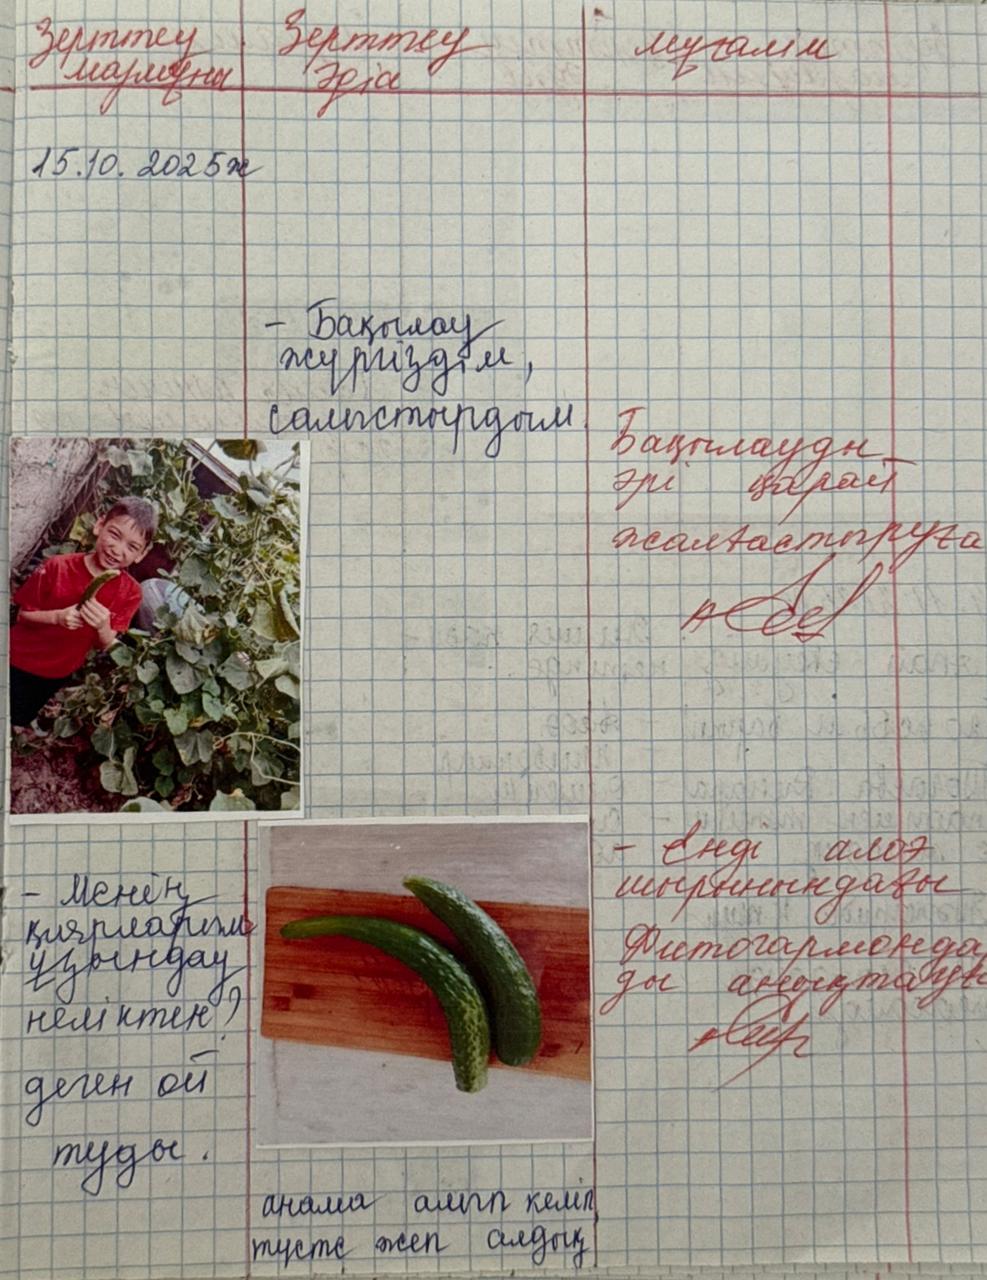 Зерттеу Зерттеу мұғалім
мазмұны әдіс
15.10.2025ж
- Бақылау
жүргіздім,
салыстырдым
Бақылауды
әрі қарай
жалғастыруға
- Менің
қиярларым
ұзындау
неліктен?
деген ой
туды.
- Енді алоэ
шырынындағы
Фитогармонда
ды анықтау
анама алып келіп
түсте жеп алдық